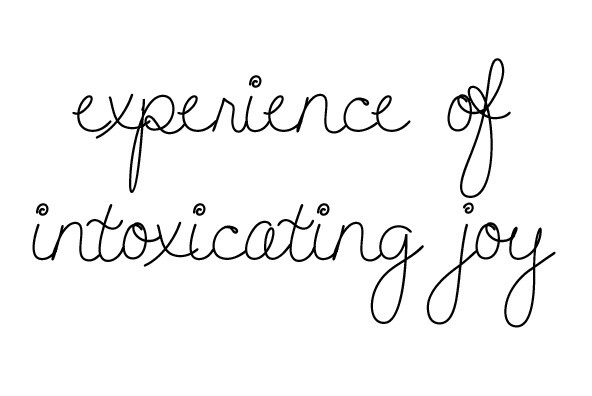 experience of
intoxicating joy